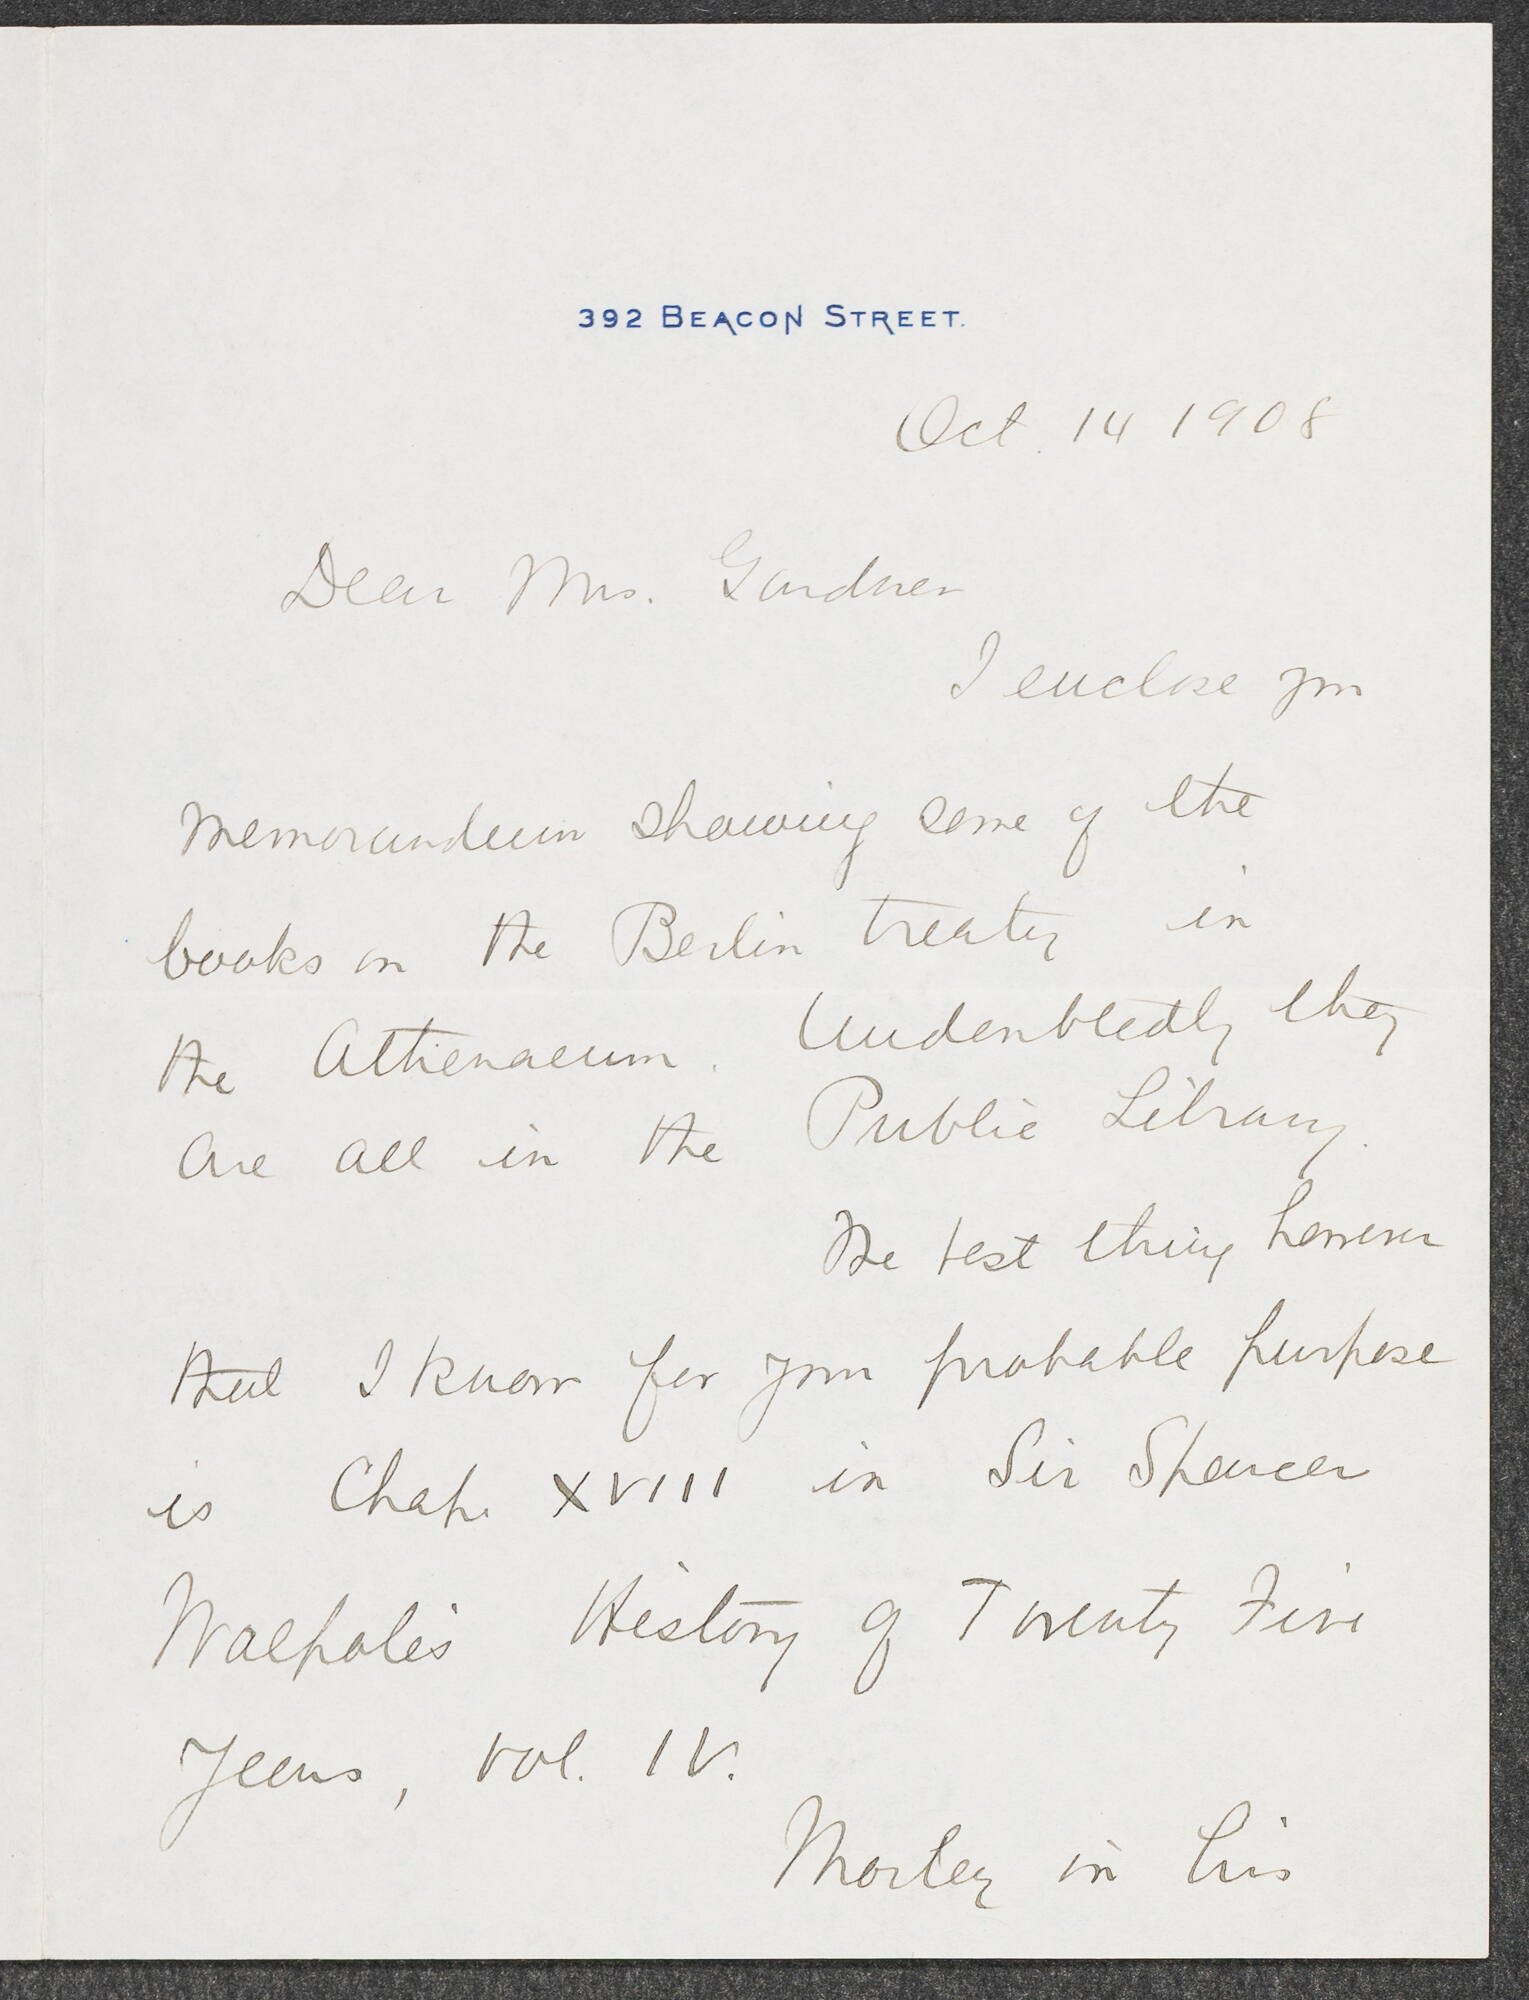 392 BEACON STREET.
Oct. 14 1908
Dear Mrs. Gardner
I enclose you
memorandum showing some of the
books on the Berlin treaty in
the Athenaeum. Undoubtedly they
are all in the Public Library.
The best thing however
that I know for your probable purpose
is Chap. XVIII in Sir Spencer
Walpole's History of Twenty Five
Years, Vol. IV.
Morley in his